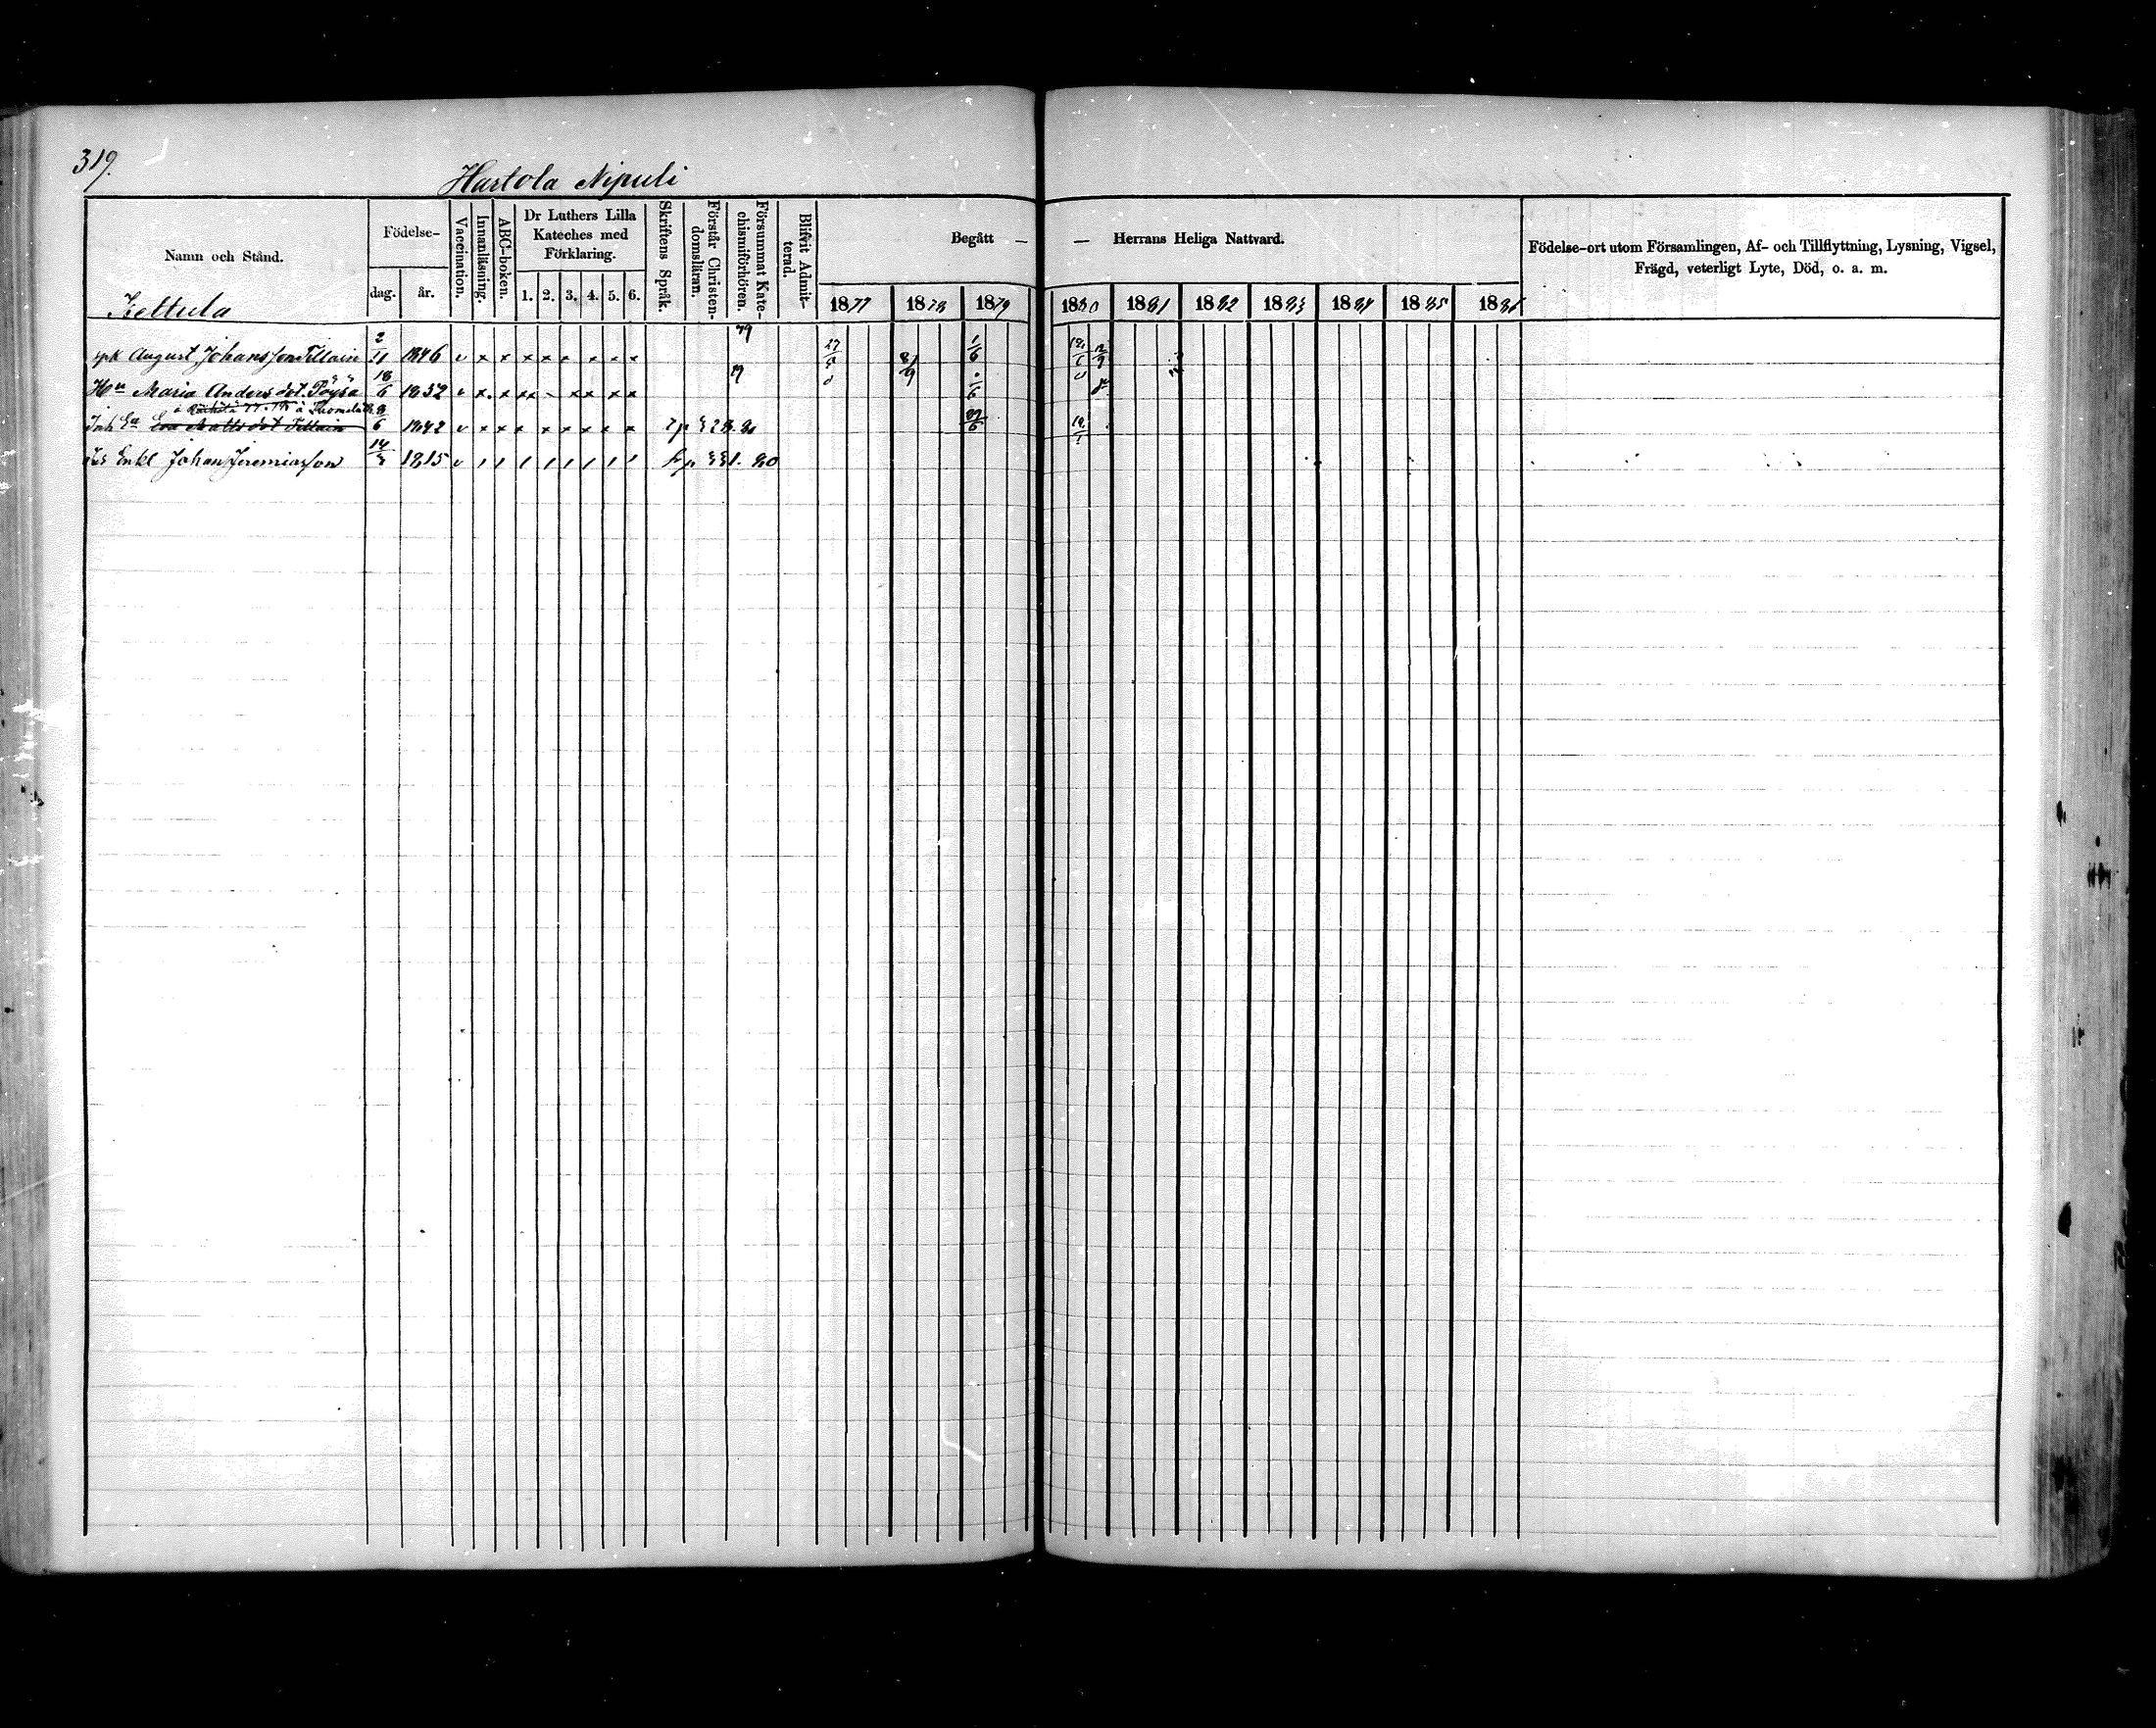 319.
Hartola Nipuli
Namn och Stånd.
Födelse-
dag.
år.
Vaccination.
Innanläsning.
ABC-boken.
Dr Luthers Lilla
Kateches med
Förklaring.
1. 2. 3. 4. 5. 6.
Skriftens Språk.
Förstår Christen-
domsläran.
Försummat Kate-
chismiförhören.
Blifvit Admit-
terad.
Begått —
— Herrans Heliga Nattvard.
1877 1878 1879 1880 1881 1882 1883 1884 1885 1886
Födelse-ort utom Församlingen, Af- och Tillflyttning, Lysning, Vigsel,
Frägd, veterligt Lyte, Död, o. a. m.
Kettula
August Johansson Tillain 2/11 1846 v x x x x x x x x 79 27/5 1/6
Hu Maria Andersdot. Pöysä 18/6 1852 v x x x x x x x
Eva Mattsdot Tillain 6 1842 v x x x x x x x x
Enkl Johan Jeremiasson 14 1815 v